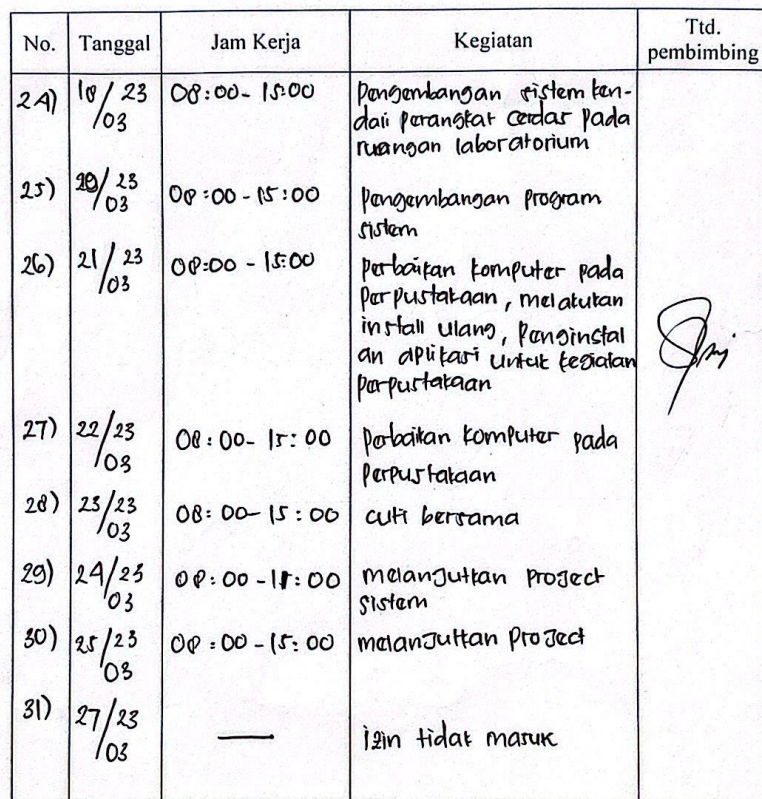 No. Tanggal Jam Kerja Kegiatan Ttd. pembimbing
24) 18/23 08:00 - 15:00 Pengembangan sistem ken-
03 dali perangkat cerdas pada
ruangan laboratorium
25) 20/23 08:00 - 15:00 Pengembangan program
03 sistem
26) 21/23 08:00 - 15:00 Perbaikan komputer pada
03 Perpustakaan, melakukan
install ulang, Penginstal
an aplikasi untuk kegiatan
Perpustakaan
27) 22/23 08:00 - 15:00 Perbaikan komputer pada
03 Perpustakaan
28) 23/23 08:00 - 15:00 cuti bersama
03
29) 24/23 08:00 - 15:00 melanjutkan project
03 sistem
30) 25/23 08:00 - 15:00 melanjutkan project
03
31) 27/23 — izin tidak masuk
03